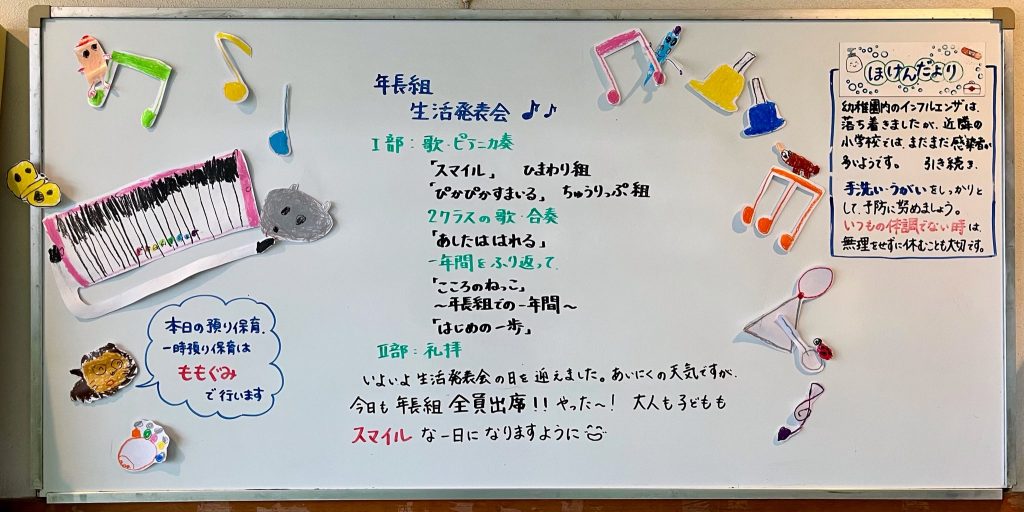 年長組
生活発表会♪♪
Ⅰ部：歌・ピアニカ奏
「スマイル」 ひまわり組
「ぴかぴかすまいる」 ちゅうりっぷ組
2クラスの歌・合奏
「あしたははれる」
一年間をふり返って
「こころのねっこ」
～年長組での一年間～
「はじめの一歩」
Ⅱ部：礼拝
いよいよ生活発表会の日を迎えました。あいにくの天気ですが、
今日も年長組全員出席!!やった～! 大人も子どもも
スマイルな一日になりますように
本日の預り保育、
一時預り保育は
ももぐみ
で行います
ほけんだより
幼稚園内のインフルエンザは、
落ち着きましたが、近隣の
小学校では、まだまだ感染者が
多いようです。 引き続き、
手洗い・うがいをしっかりと
して、予防に努めましょう。
いつもの体調でない時は、
無理をせずに休むことも大切です。